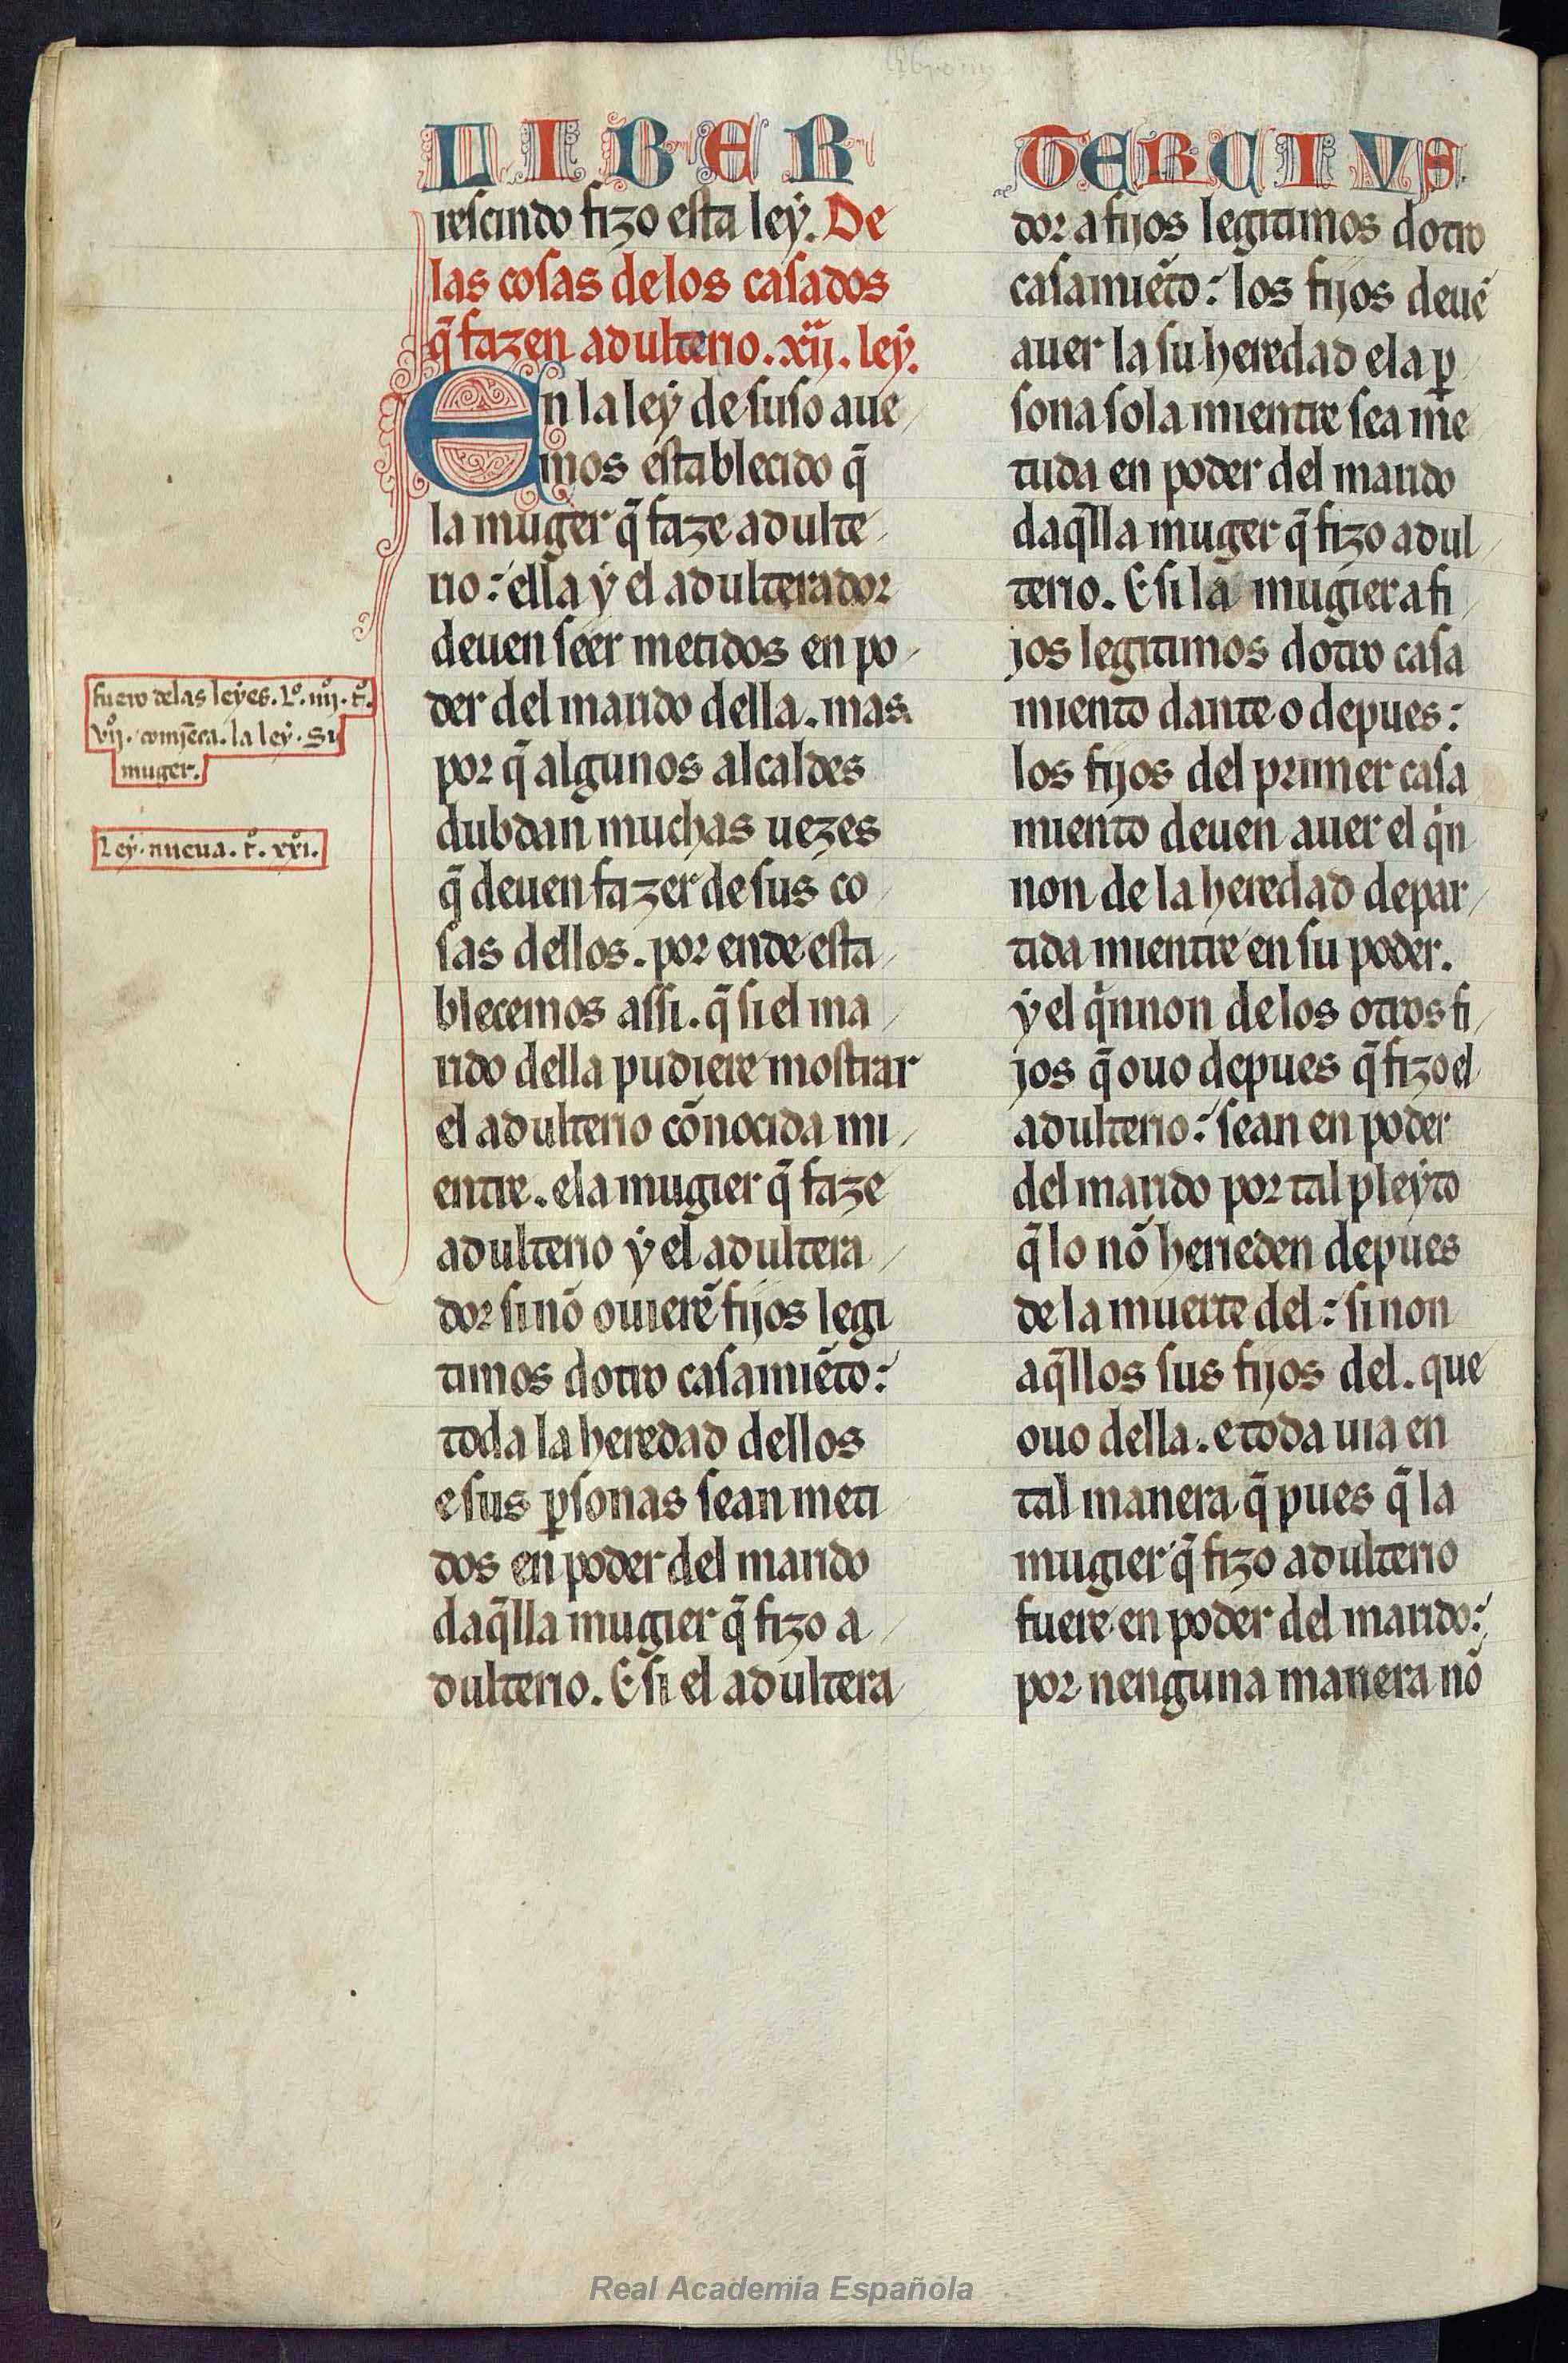 LIBER
rescindo fizo esta leẏ. De
las cosas de los casados
q̃ fazen adulterio. xii. leẏ.
En la leẏ de suso aue
mos establecido q̃
la muger q̃ faze adulte
rio: ella ẏ el adulterador
deuen seer metidos en po
der del marido della. mas
por q̃ algunos alcaldes
dubdan muchas uezes
q̃ deuen fazer de sus co
sas dellos. por ende esta
blecemos assi. q̃ si el ma
rido della pudiere mostrar
el adulterio cõnocida mi
entre. e la mugier q̃ faze
adulterio ẏ el adultera
dor si nõ ouierẽ fijos legi
timos dotro casamiẽto:
toda la heredad dellos
e sus ꝑsonas sean meti
dos en poder del marido
daq̃lla mugier q̃ fizo a
dulterio. E si el adultera
TERCIUS
dor a fijos legitimos dotro
casamiẽto: los fijos deuẽ
auer la su heredad e la ꝑ
sona sola mientre sea me
tuda en poder del marido
daq̃lla muger q̃ fizo adul
terio. E si la mugier a fi
jos legitimos dotro casa
miento dante o depues:
los fijos del primer casa
miento deuen auer el qͥn
non de la heredad depar
tida mientre en su poder.
ẏ el qͥnnon de los otros fi
jos q̃ ouo depues q̃ fizo el
adulterio: sean en poder
del marido por tal pleẏto
q̃ lo nõ herieden depues
de la muerte del: si non
aq̃llos sus fijos del. que
ouo della. e toda uia en
tal manera q̃ pues q̃ la
mugier q̃ fizo adulterio
fuere en poder del marido:
por nenguna manera nõ
fuero delas leẏes. Lº. iiij. tº.
vij. comiẽça. la leẏ. Si
muger.
Leẏ. nueua. tº. xxi.
Real Academia Española